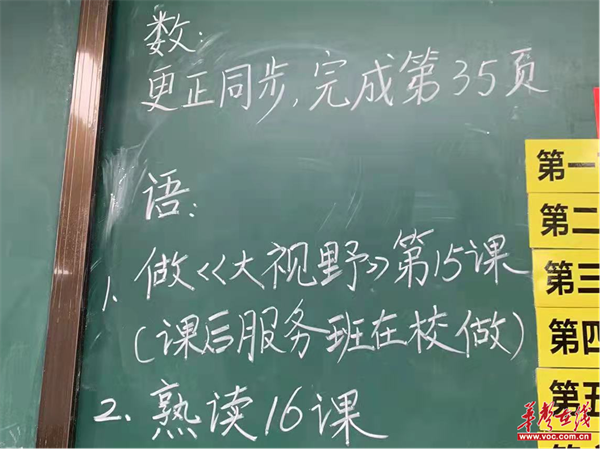 数:
更正同步,完成第35页
语:
1. 做《大视野》第15课
(课后服务班在校做)
2. 熟读16课
第一
第二
第三
第四
第五
华声在线
www.voc.com.cn